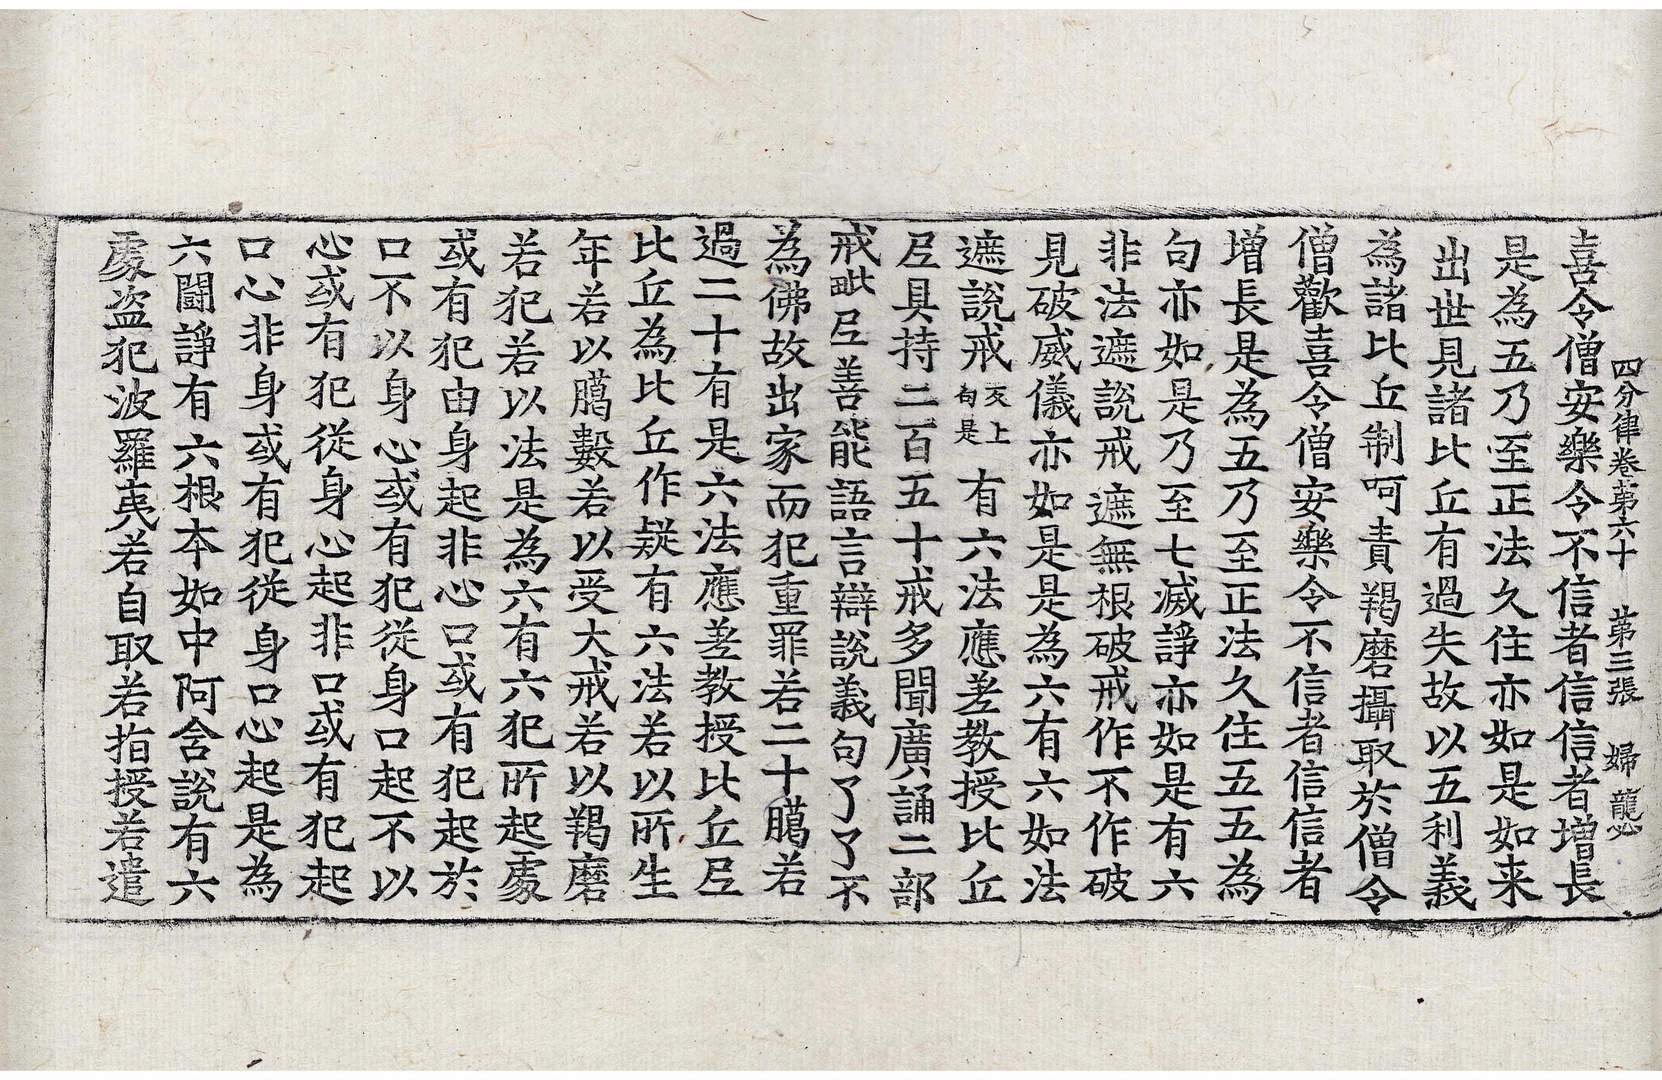 四分律卷第六十　第三張　婦　龍必
喜令僧安樂令不信者信信者增長
是為五乃至正法久住亦如是如来
出世見諸比丘有過失故以五利義
為諸比丘制呵責羯磨攝取於僧令
僧歡喜令僧安樂令不信者信信者
增長是為五乃至正法久住五五為
句亦如是乃至七滅諍亦如是有六
非法遮說戒遮無根破戒作不作破
見破威儀亦如是是為六有六如法
遮說戒反上句是有六法應差教授比丘
尼具持二百五十戒多聞廣誦二部
戒毗尼善能語言辯說義句了了不
為佛故出家而犯重罪若二十臈若
過二十有是六法應差教授比丘尼
比丘為比丘作疑有六法若以所生
年若以臈數若以受大戒若以羯磨
若犯若以法是為六有六犯所起處
或有犯由身起非心口或有犯起於
口不以身心或有犯從身口起不以
心或有犯從身心起非口或有犯起
口心非身或有犯從身口心起是為
六鬪諍有六根本如中阿含說有六
處盜犯波羅夷若自取若指授若遣